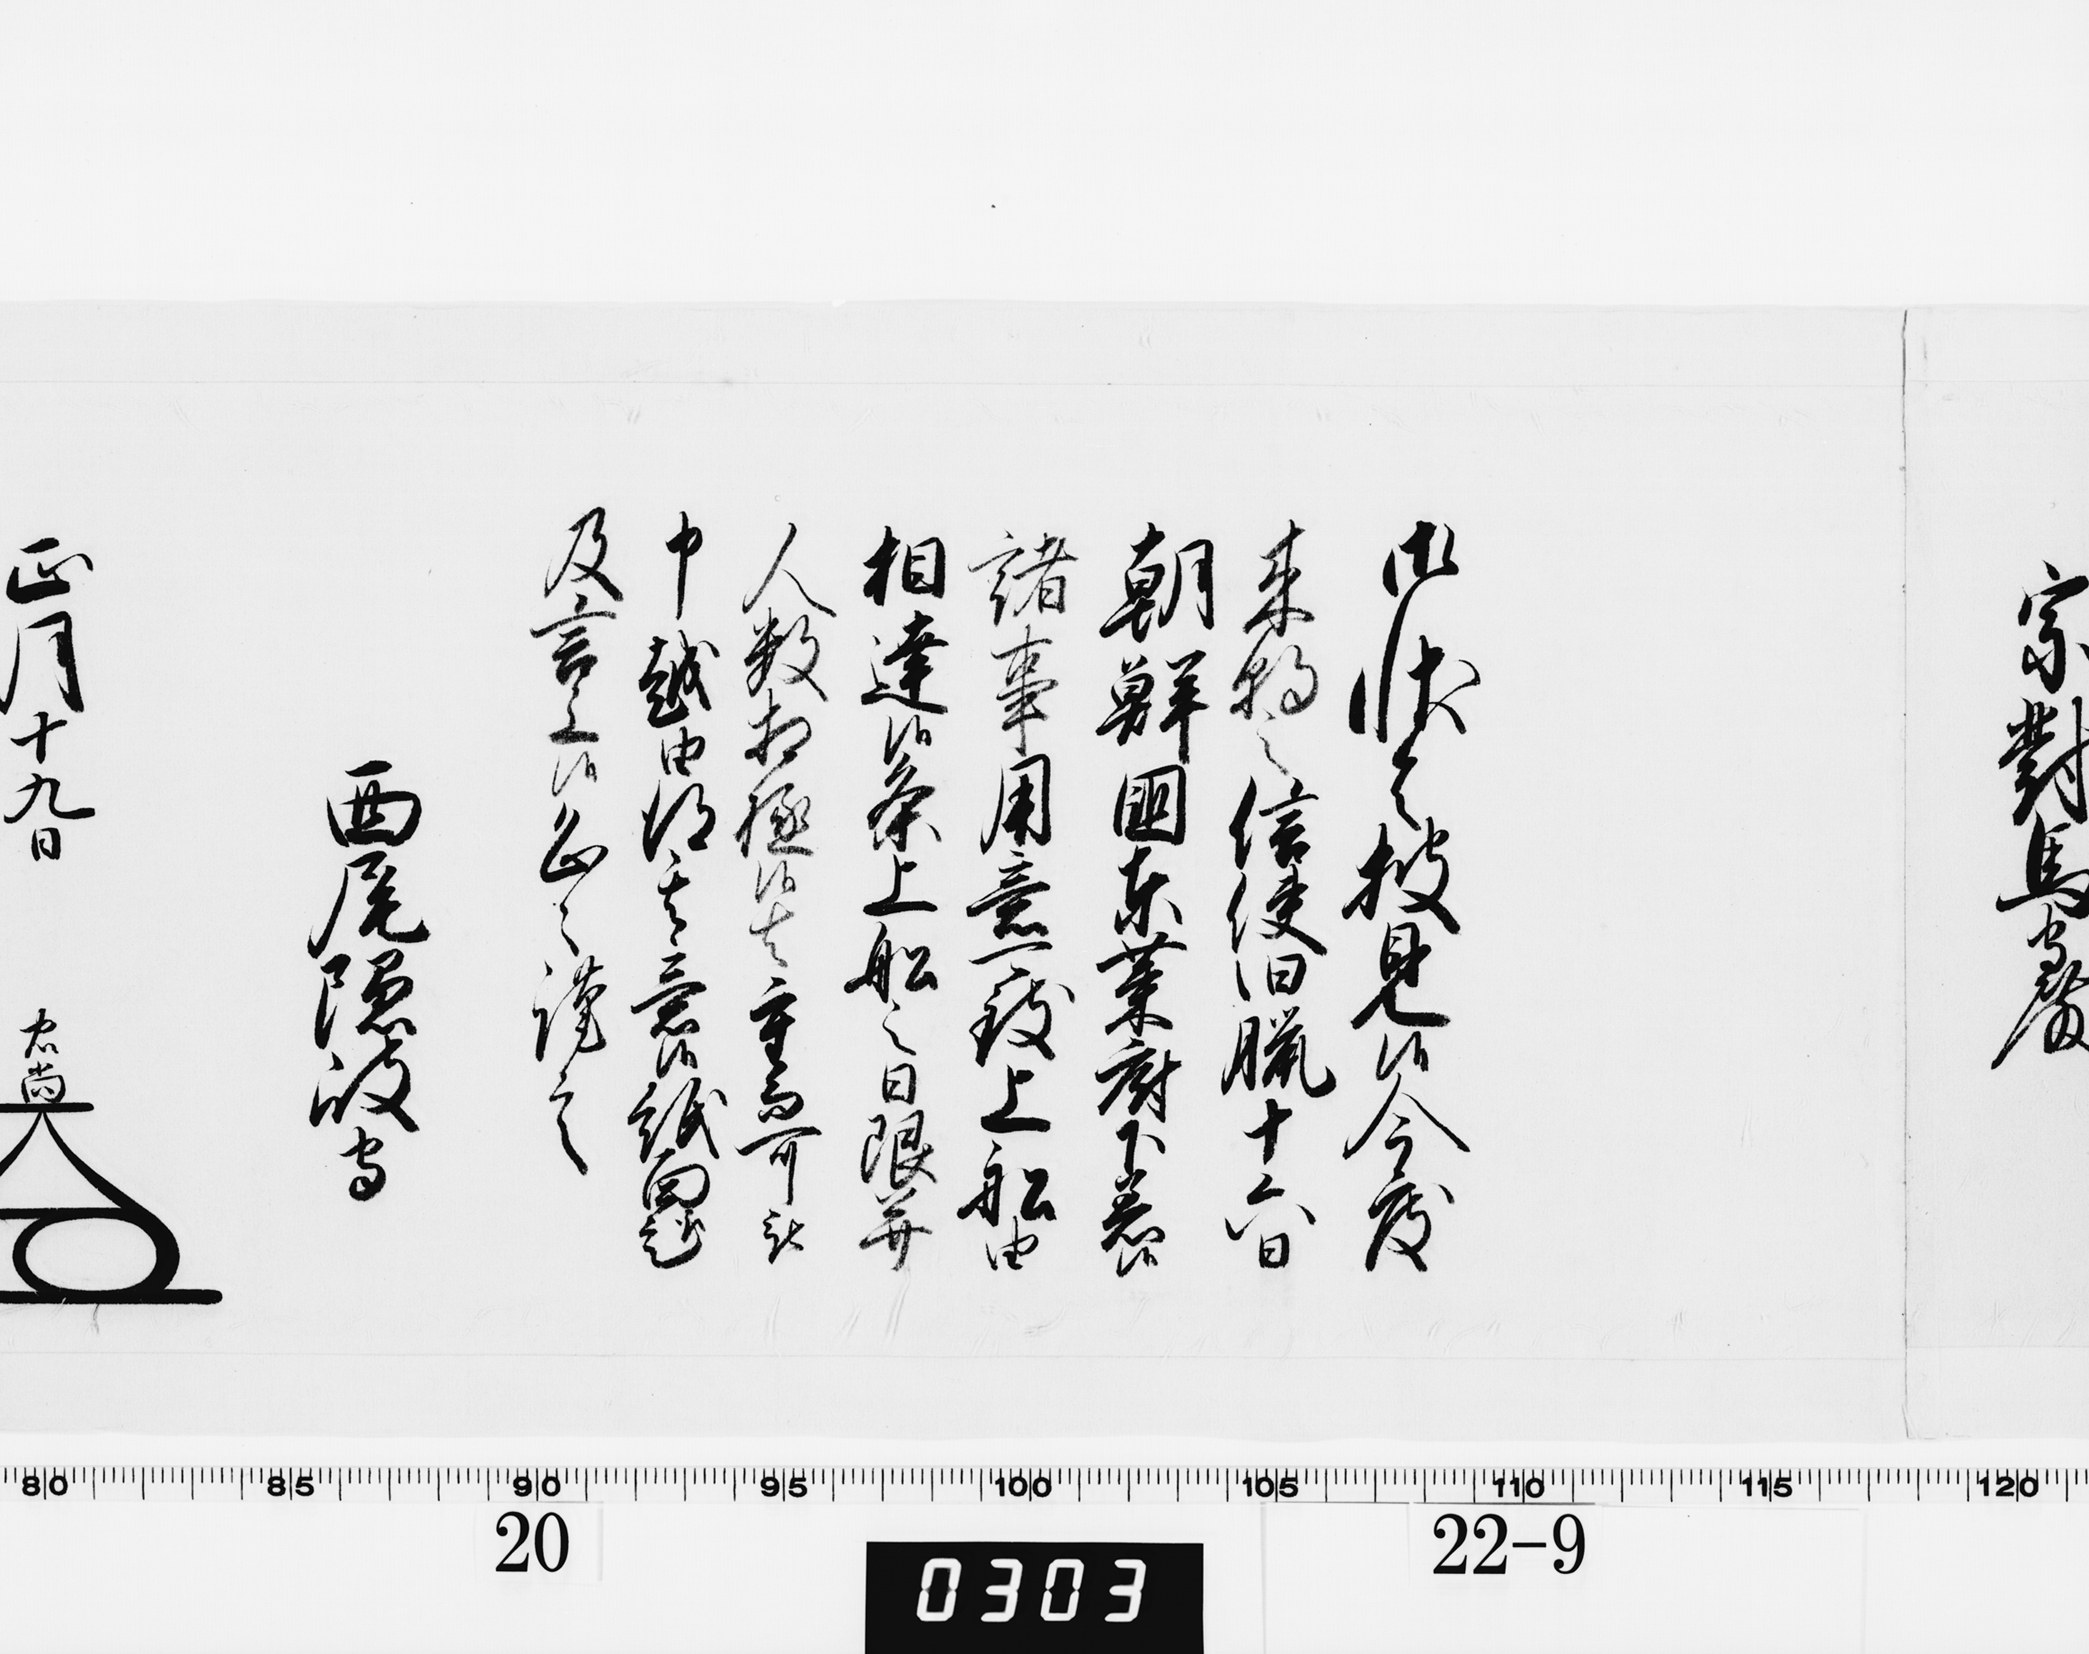 宗對馬守殿
御状令披見候今度
来聘之信使旧臘十六日
朝鮮國東莱府下着候
諸事用意致上船由
相達候条上船之日限并
人数相極候者重而可被
申越由得其意候紙面趣
及言上候恐々謹言
西尾隠岐守
正月十九日
忠尚
80 85 90 95 100 105 110 115 120
20
0303
22-9